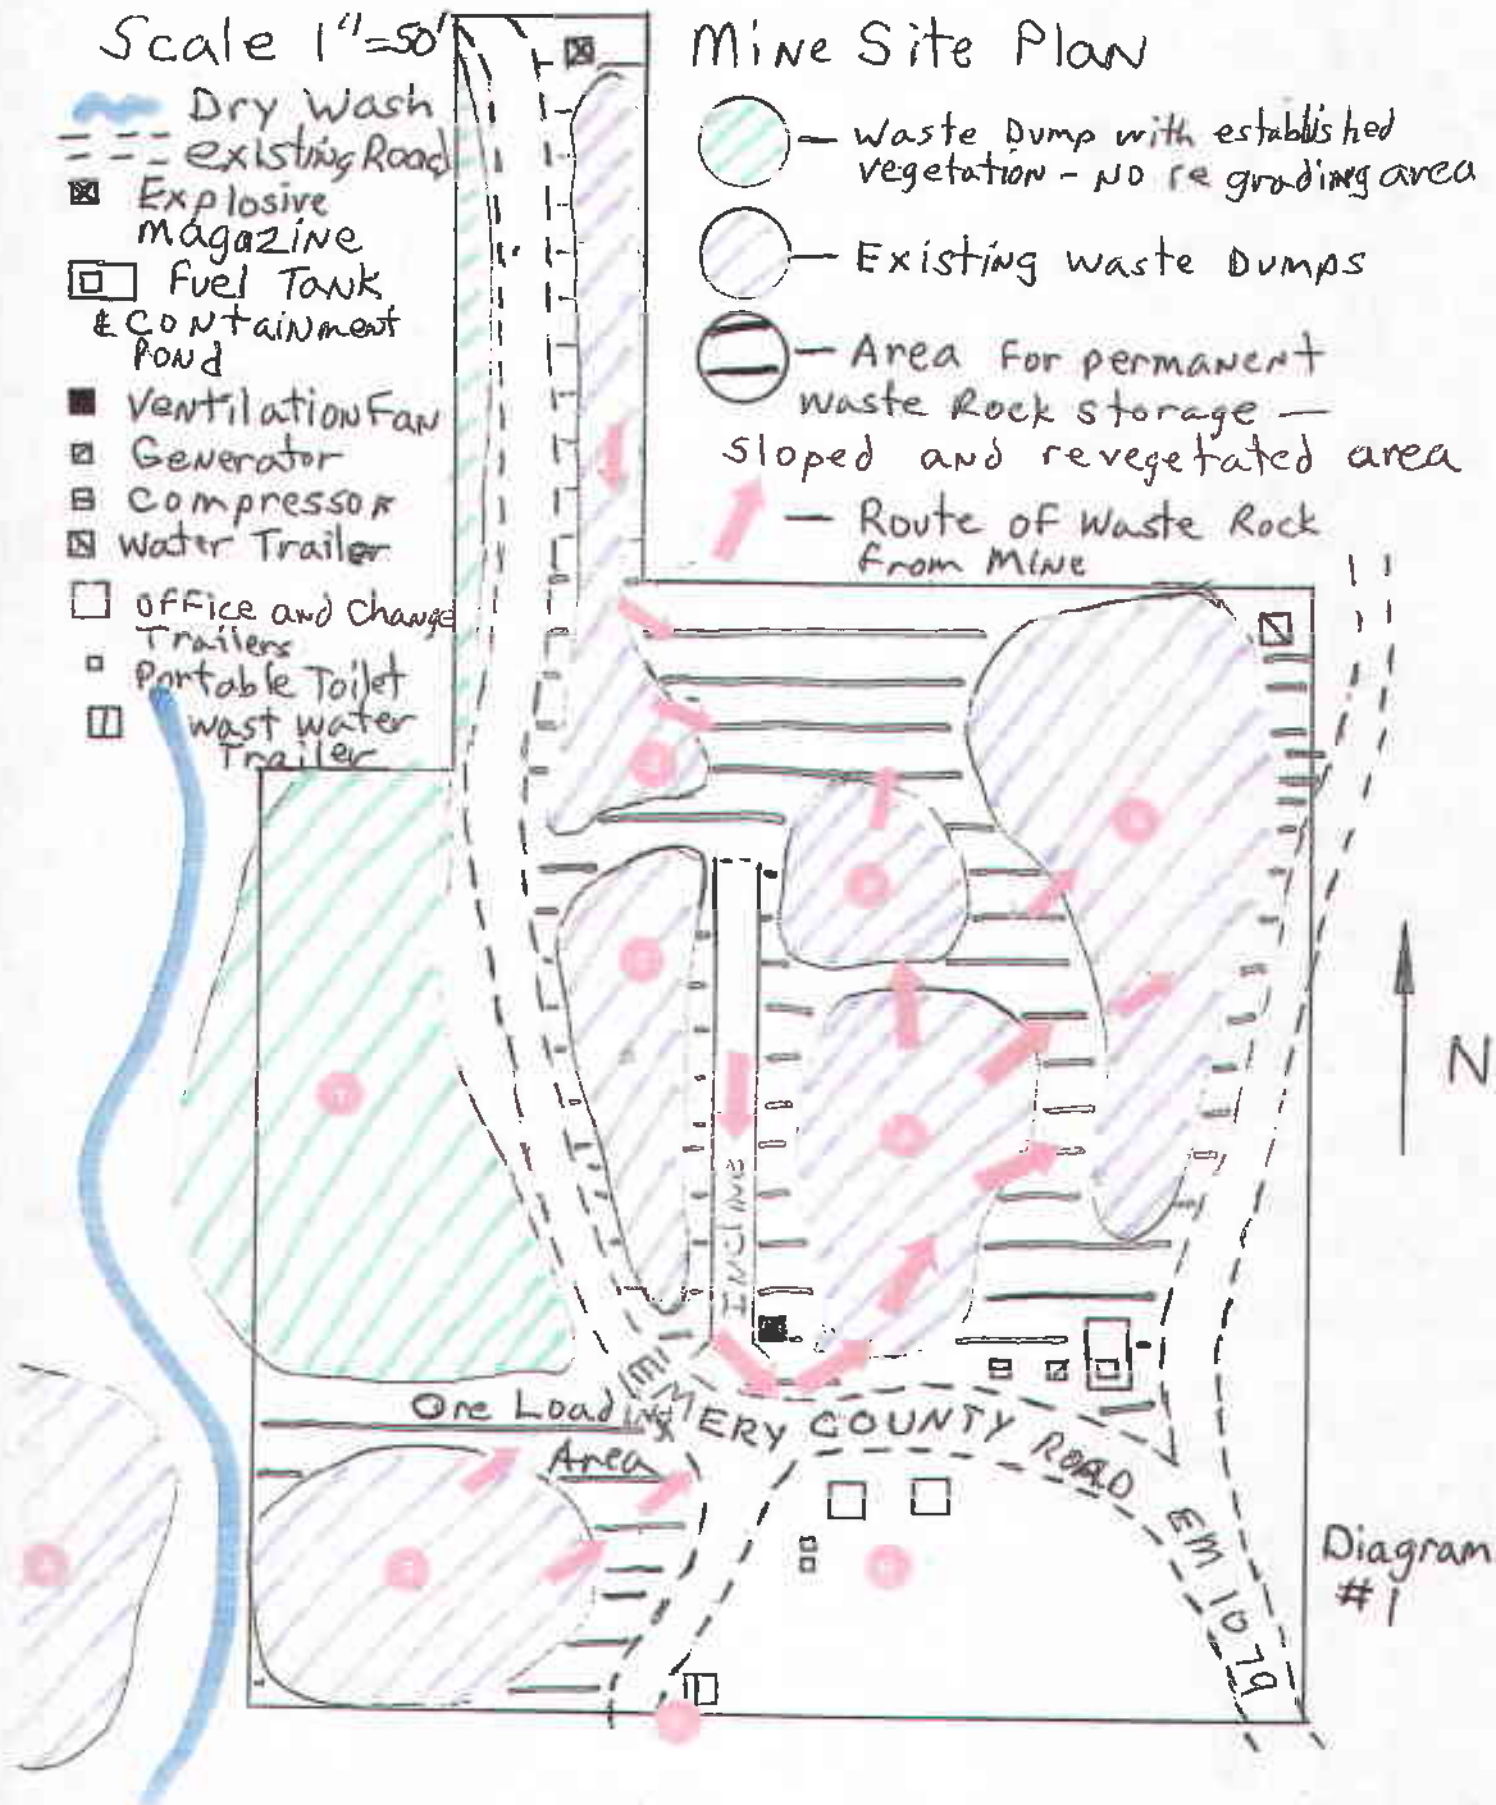 Scale 1"=50'
Dry Wash
existing Road
Explosive
Magazine
Fuel Tank
& Containment
Pond
Ventilation Fan
Generator
Compressor
Water Trailer
Office and Change
Trailers
Portable Toilet
Wast water
Trailer
Mine Site Plan
Waste Dump with established
vegetation - NO regrading area
Existing Waste Dumps
Area For permanent
Waste Rock storage —
Sloped and revegetated area
Route of Waste Rock
From Mine
N
INCLINE
Ore Loading
Area
EMERY COUNTY ROAD EM 1079
Diagram
#1